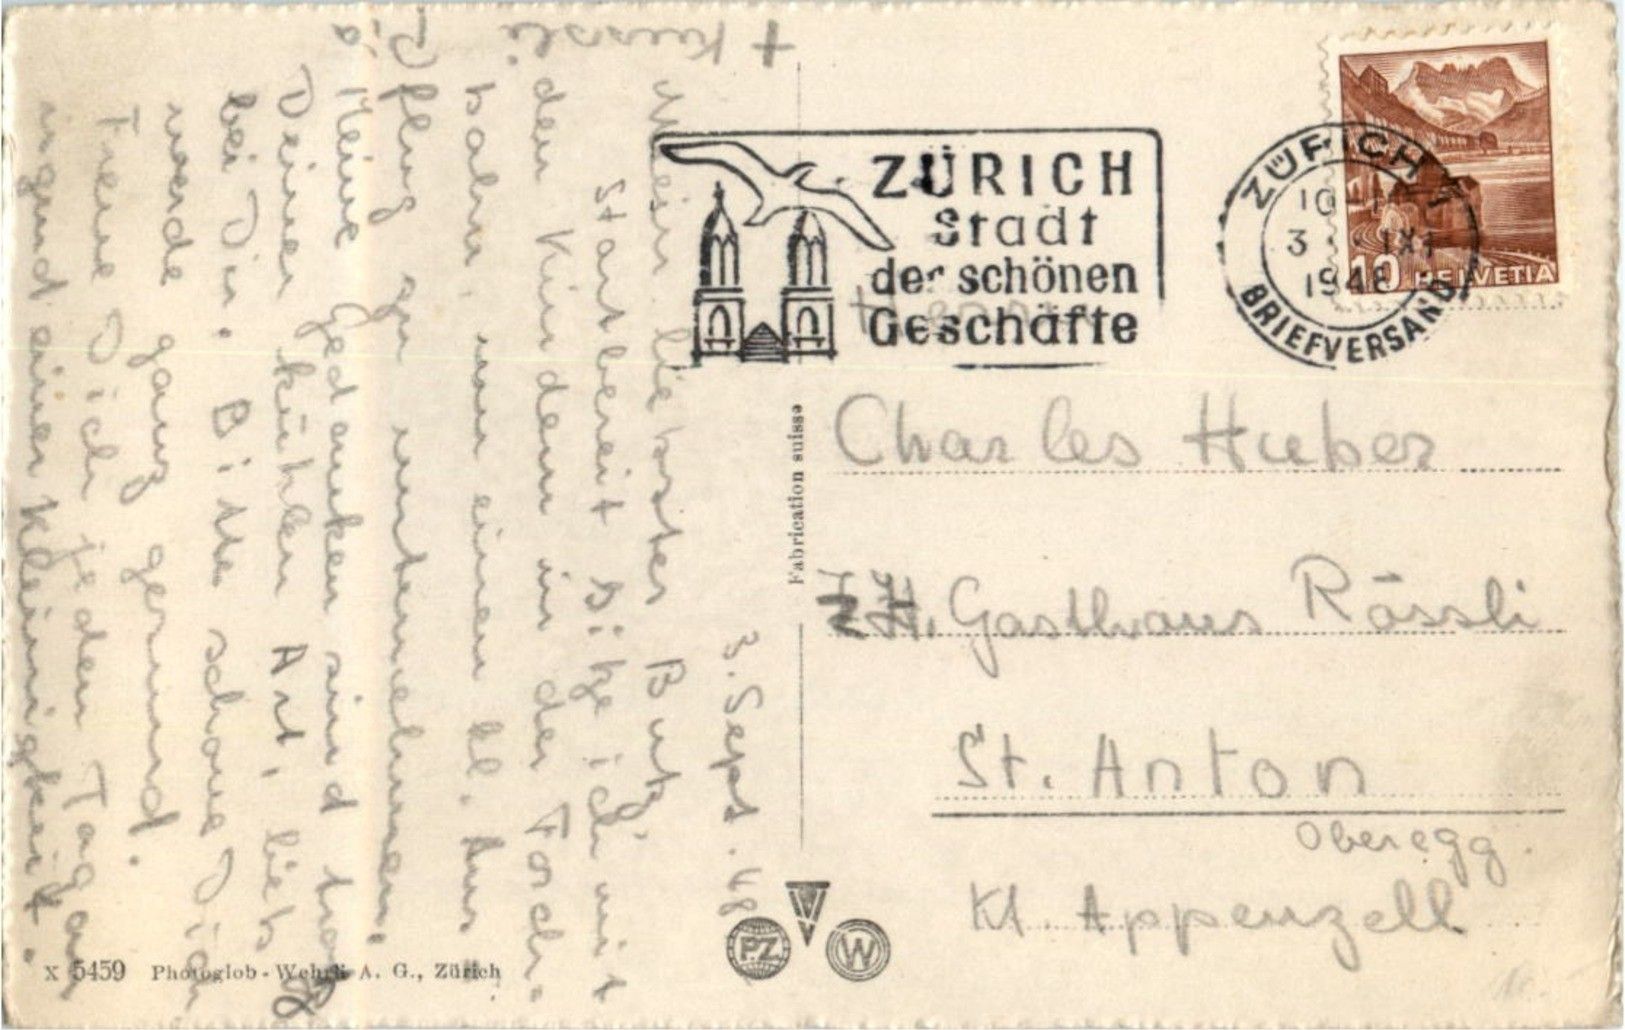 3. Sept. 48
Mein liebster Butz,
Startbereit sitze ich mit
den Kindern in der Forch-
bahn, um einen kl. Aus
Pflug zu unternehmen.
Meine Gedanken sind trotz
Deiner kühlen Art, lieb
bei Dir. Bitte schone Dich
werde ganz gesund.
Freue Dich jeden Tag an
irgend einer Kleinigkeit.
+ Kussli
ZÜRICH
Stadt
der schönen
Geschäfte
ZÜRICH 1
3. IX
1948
BRIEFVERSAND
10 HELVETIA
Herrn
Charles Huber
z. H. Gasthaus Rössli
St. Anton
Oberegg.
Kt. Appenzell
Fabrication suisse
PZ
W
X 5459 Photoglob-Wehrli A. G., Zürich